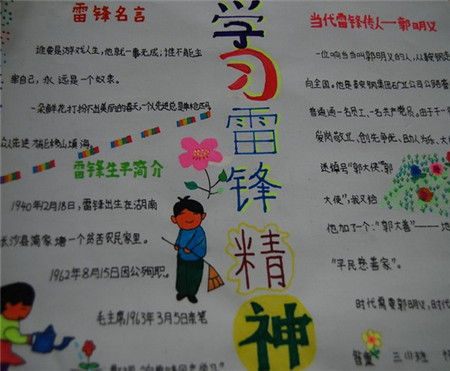 雷锋名言
谁要是游戏人生,他就一事无成;谁不能主
宰自己,永远是一个奴隶。
一朵鲜花打扮不出美丽的春天,一个人先进总是单枪匹马
众人先进才能移山填海。
雷锋生平简介
1940年12月18日,雷锋出生在湖南
长沙县简家塘一个贫苦农民家里。
1962年8月15日因公殉职。
毛主席1963年3月5日亲笔
学习雷锋精神
当代雷锋传人—郭明义
一位响当当叫郭明义的人,从鞍钢走
向全国。他是鞍钢集团矿业公司公路管
普通通一名员工,一名共产党员。由于
爱岗敬业,创先争优,助人为乐,大
送绰号“郭大侠”“郭
大侠”,我又给
他加了一个:“郭大善”——地
“平民慈善家”。
时代需要郭明义,时代